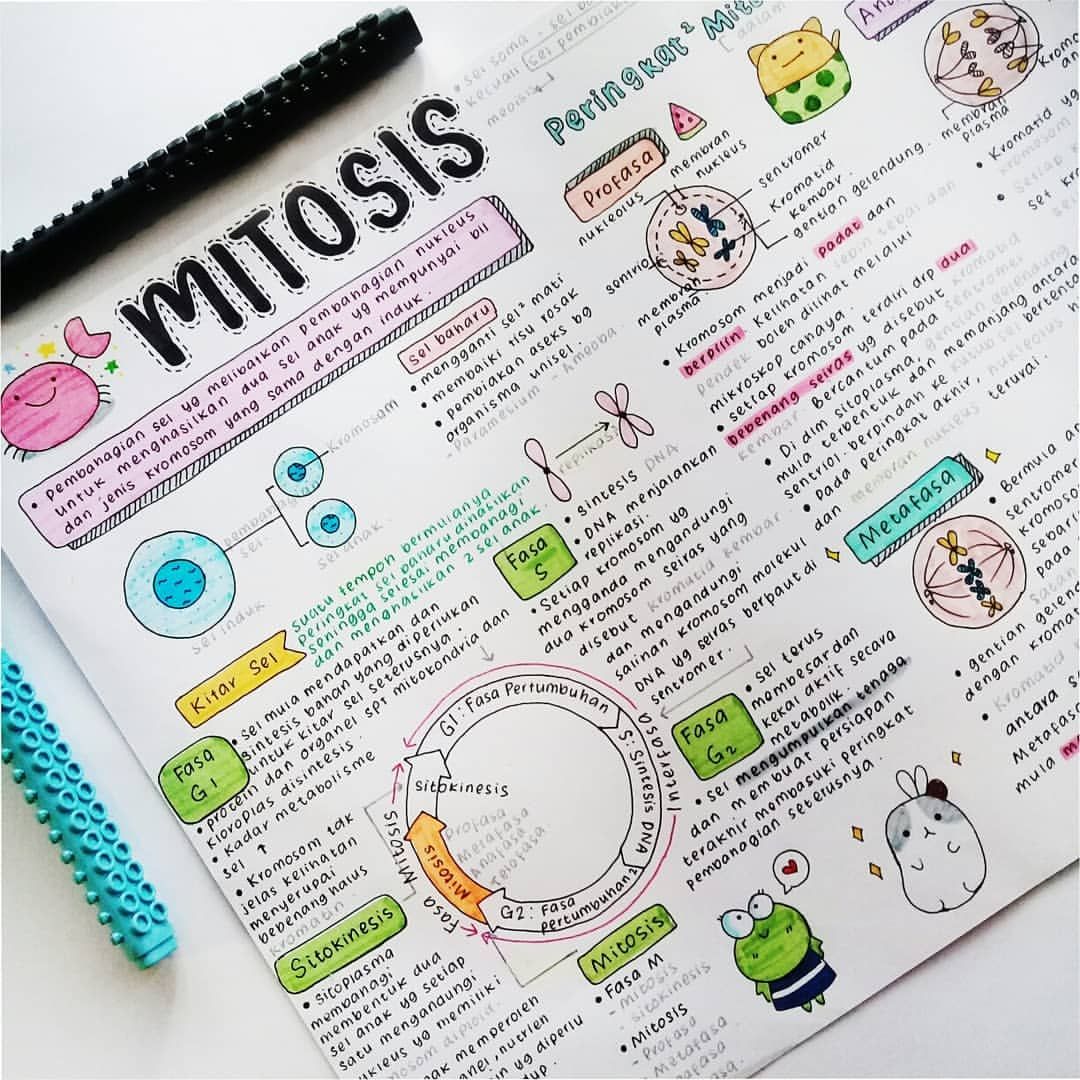 MITOSIS
• Pembahagian sel yg melibatkan pembahagian nukleus
untuk menghasilkan dua sel anak yg mempunyai bil
dan jenis kromosom yang sama dengan induk.
Sel baharu
• mengganti sel² mati
• membaiki tisu rosak
• pembiakan aseks bg
organisma unisel.
- Paramelium - Amoeba
kromosom
pembahagian
sel
sel anak
sel induk
Kitar Sel
suatu tempoh bermulanya
peringkat sel baharu dihasilkan
sehingga selesai membahagi
dan menghasilkan 2 sel anak.
Fasa
G1
• sel mula mendapatkan dan
sintesis bahan yang diperlukan
untuk kitar sel seterusnya.
• protein dan organel spt mitokondria dan
kloroplas disintesis.
• Kadar metabolisme
sel ↑
• Kromosom tak
jelas kelihatan
menyerupai
bebenang halus
kromatin
Sitokinesis
• Sitoplasma
membahagi
membentuk dua
sel anak yg setiap
satu mengandungi
nukleus yg memiliki
G1: Fasa Pertumbuhan
S: Sintesis DNA
G2: Fasa
pertumbuhan2
Interfasa
Sitokinesis
Mitosis
Fasa Mitosis
Profasa
Metafasa
Anafasa
Telofasa
replikasi
Fasa
S
• Sintesis DNA
• DNA menjalankan
replikasi.
• Setiap kromosom yg
mengganda mengandungi
dua kromosom seiras yang
disebut kromatid kembar.
dan mengandungi
salinan kromosom molekul
DNA yg seiras berpaut di
sentromer.
Fasa
G2
• sel terus
membesar dan
kekal aktif secara
metabolik
• sel mengumpulkan tenaga
dan membuat persiapan
terakhir memasuki peringkat
pembahagian seterusnya.
Mitosis
• Fasa M
- mitosis
- sitokinesis
• Mitosis
- Profasa
- Metafasa
Peringkat² Mito
Profasa
membran
nukleus
nukleolus
sentromer
Kromatid
kembar
gentian gelendung.
sentriol
membran
plasma
• Kromosom menjadi padat dan
berpilin. Kelihatan lebih tebal dan
pendek boleh dilihat melalui
mikroskop cahaya.
• setiap kromosom terdiri drp dua
bebenang seiras yg disebut kromatid
kembar. Bercantum pada sentromer.
• Di dlm sitoplasma, gentian gelendung
mula terbentuk dan memanjang antara
sentriol. berpindah ke kutub sel bertenta
• Pada peringkat akhir, nukleolus
dan membran nukleus terurai.
Metafasa
membran
plasma
• Kromatid yg
• gentian gelend
dengan kroma
• Kromatid
antara s
Metafas
mula